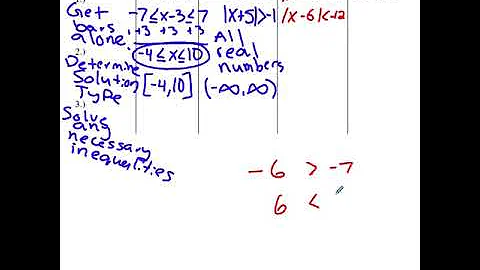 1.)
Get bars alone.
2.)
Determine Solution Type
3.)
Solve any necessary inequalities
-7≤x-3≤7
+3 +3 +3
-4≤x≤10
[-4,10]
|x+5|>-1
All real numbers
(-∞,∞)
|x-6|<-12
-6 > -7
6 <